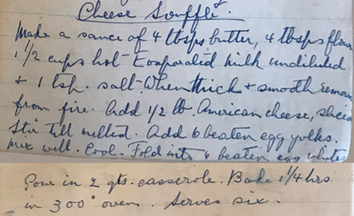 Cheese Soufflé
Make a sauce of 4 tbsps butter, 4 tbsps flour
1 1/2 cups hot Evaporated milk undiluted
+ 1 tsp. salt. When thick + smooth remove
from fire. Add 1/2 lb. American cheese, sliced
Stir till melted. Add 6 beaten egg yolks.
Mix well. Cool. Fold into 6 beaten egg whites
Pour in 2 qts. casserole. Bake 1 1/4 hrs
in 300° oven. Serves six.